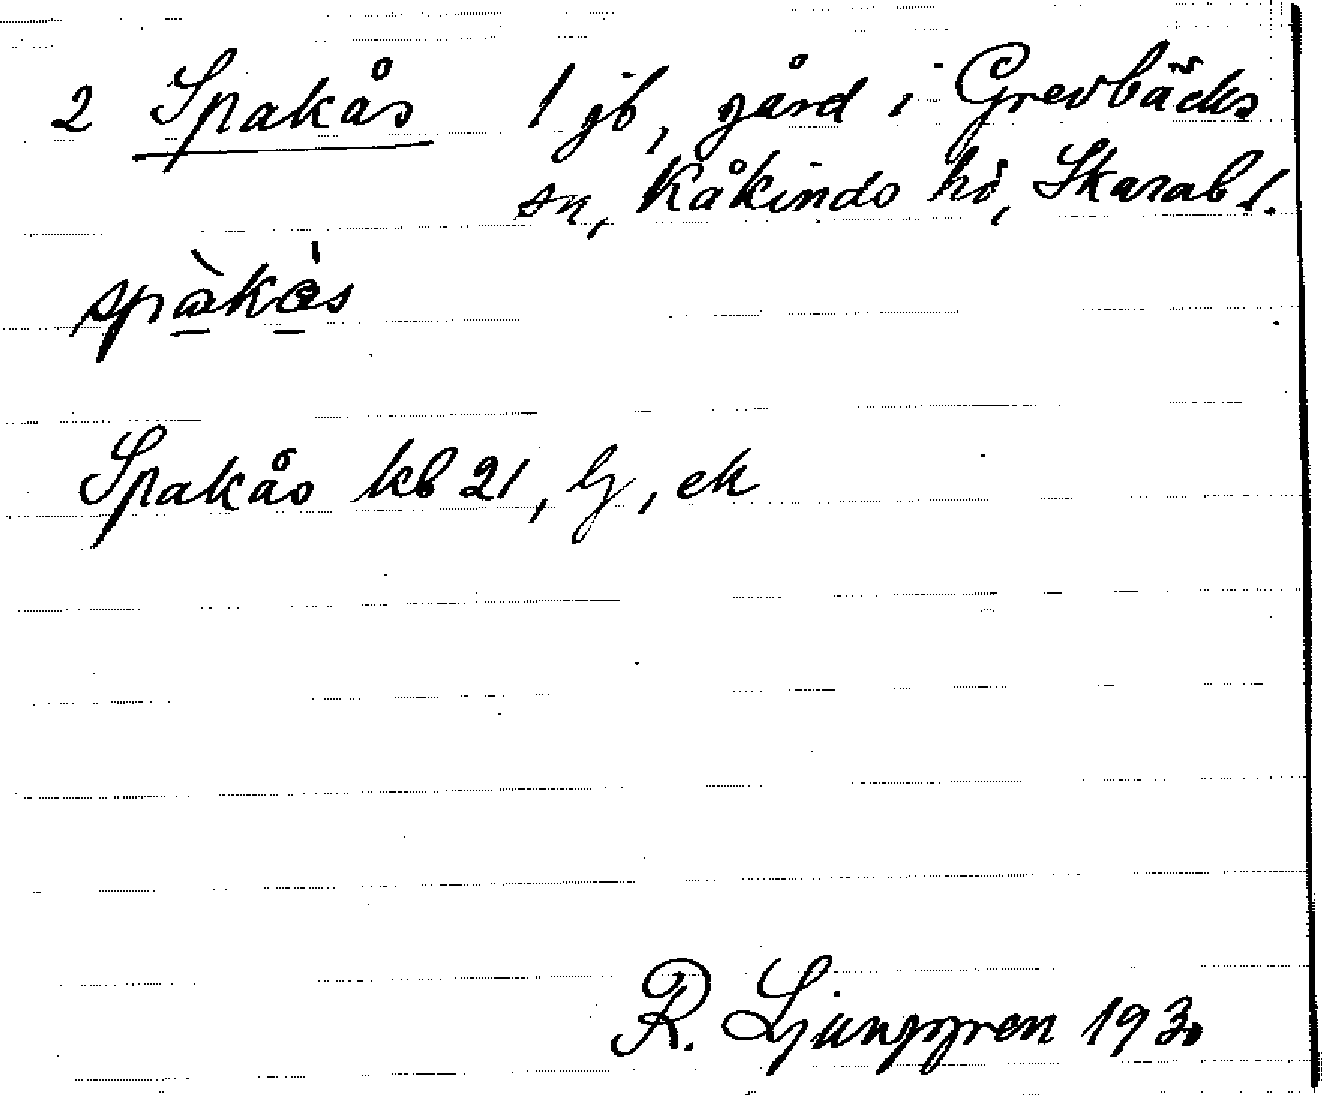 2 Spakås 1 gb, gård i Grevbäcks
sn, Kåkinds hd, Skarab l.
spàkås
Spakås kb 21, lj, ek
R. Ljunggren 1930